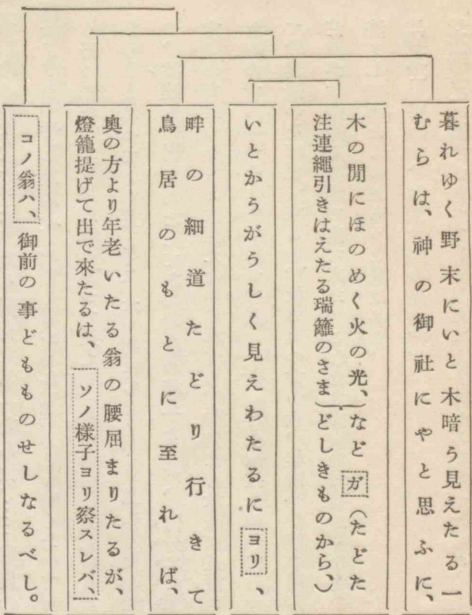 暮れゆく野末にいと木暗う見えたる一
むらは、神の御社にやと思ふに、
木の閒にほのめく火の光、
注連繩引きはえたる瑞籬のさま
などガ(たどた
どしきものから、)
いとかうがうしく見えわたるにヨリ、
畔の細道たどり行きて
鳥居のもとに至れば、
奥の方より年老いたる翁の腰屈まりたるが、
燈籠提げて出で來たるは、ソノ樣子ヨリ察スレバ、
コノ翁ハ、御前の事どもものせしなるべし。